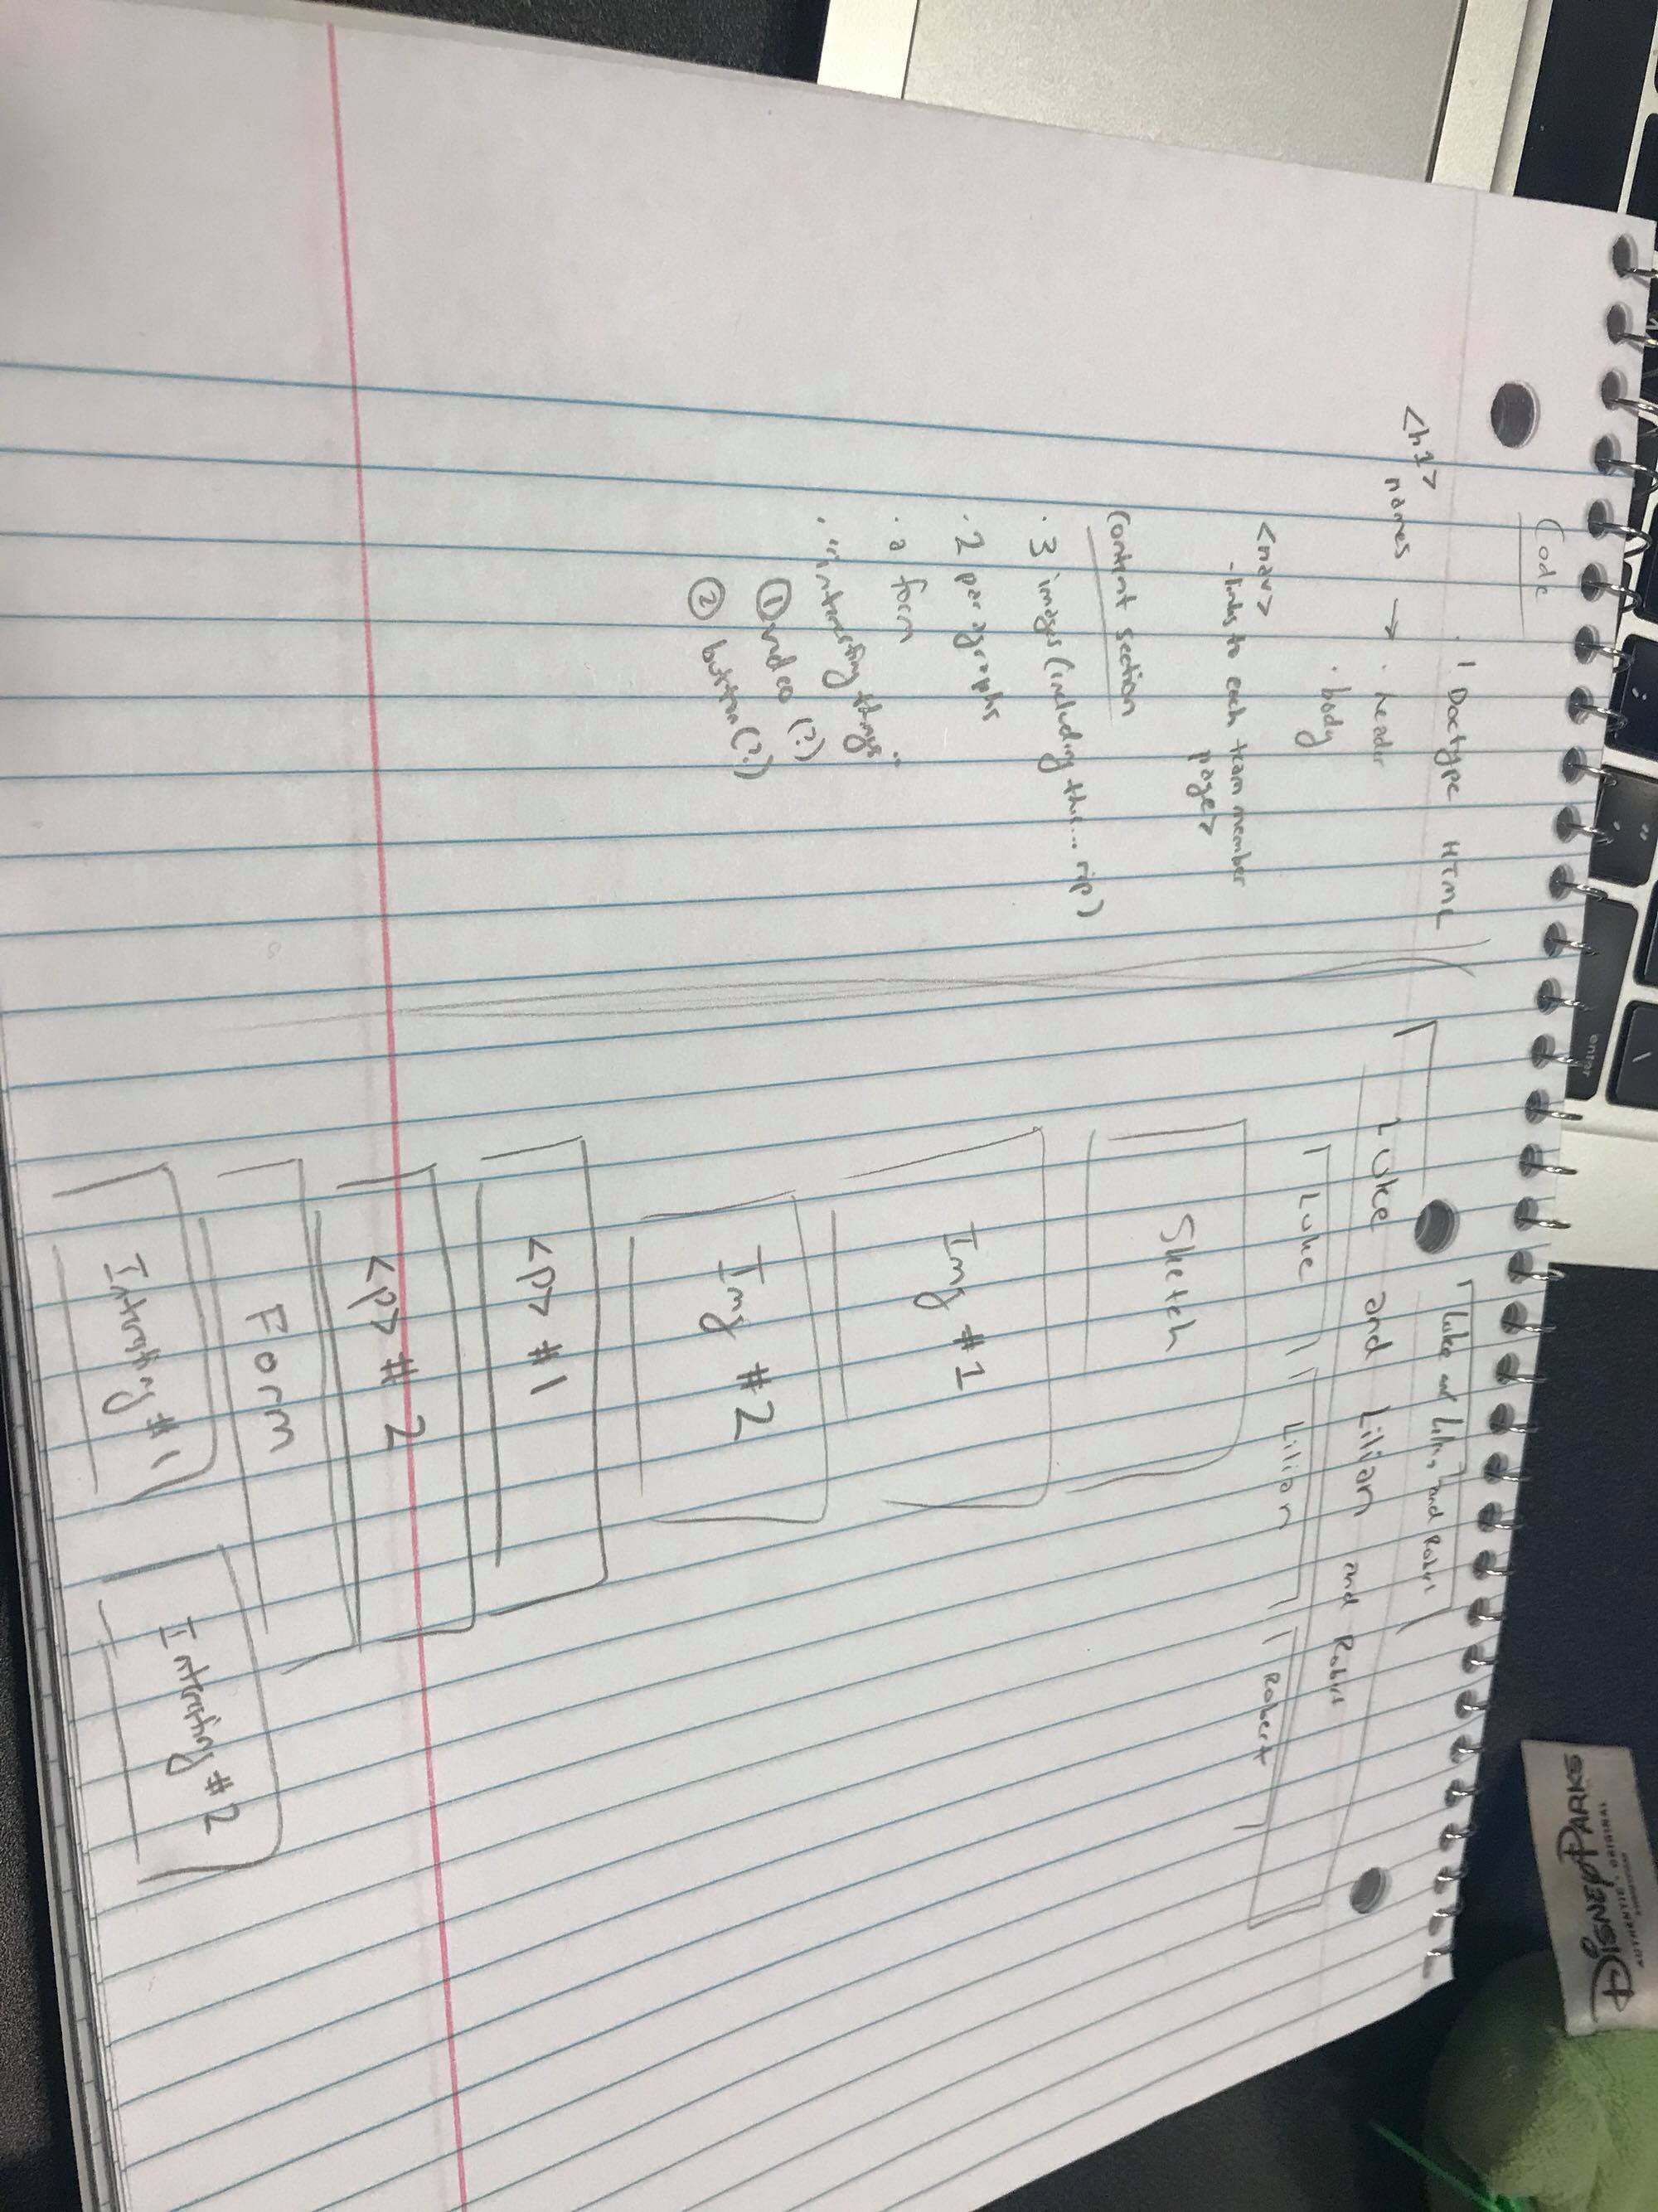 Code
! Doctype HTML
<h1>
names → · header
· body
<nav>
- links to each team member
page>
Content section
· 3 images (including this... rip)
· 2 paragraphs
· a form
· "interesting things"
① video (?)
② button (?)
Luke and Lilian and
Luke and Lilian and
Luke
Lilian
Robert
Sketch
Img #1
Img #2
<p> #1
<p> # 2
Form
Intersting #1
#2
enter
DISNEY PARKS
AUTHENTIC · ORIGINAL